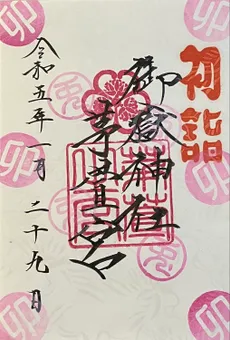 初詣
御嶽神社
茅萱宮
令和五年一月二十九日
卯
卯
卯
卯
卯
卯